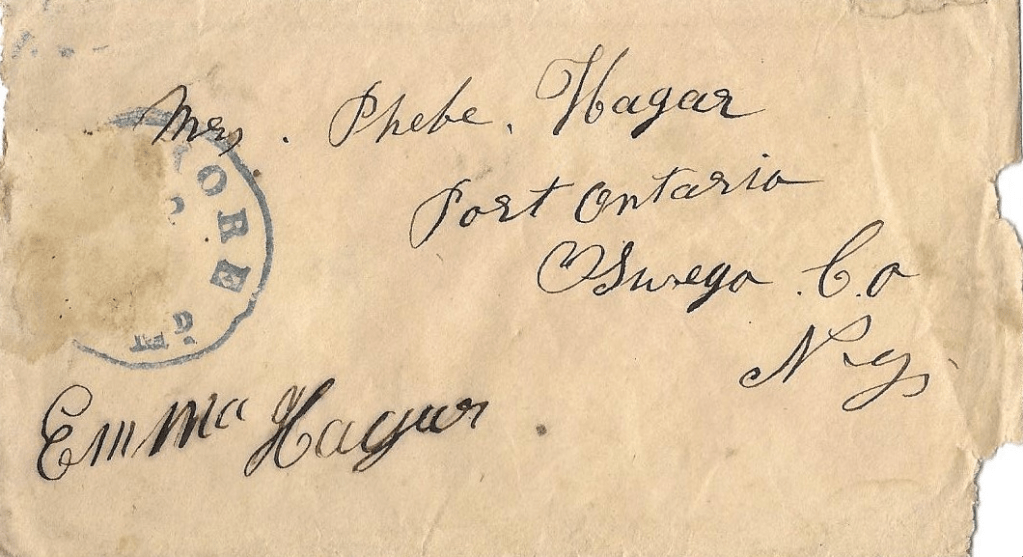 Mrs. Phebe. Hagar
Port Ontario
Oswego Co
N-y,
Emma Hagar.
ORE